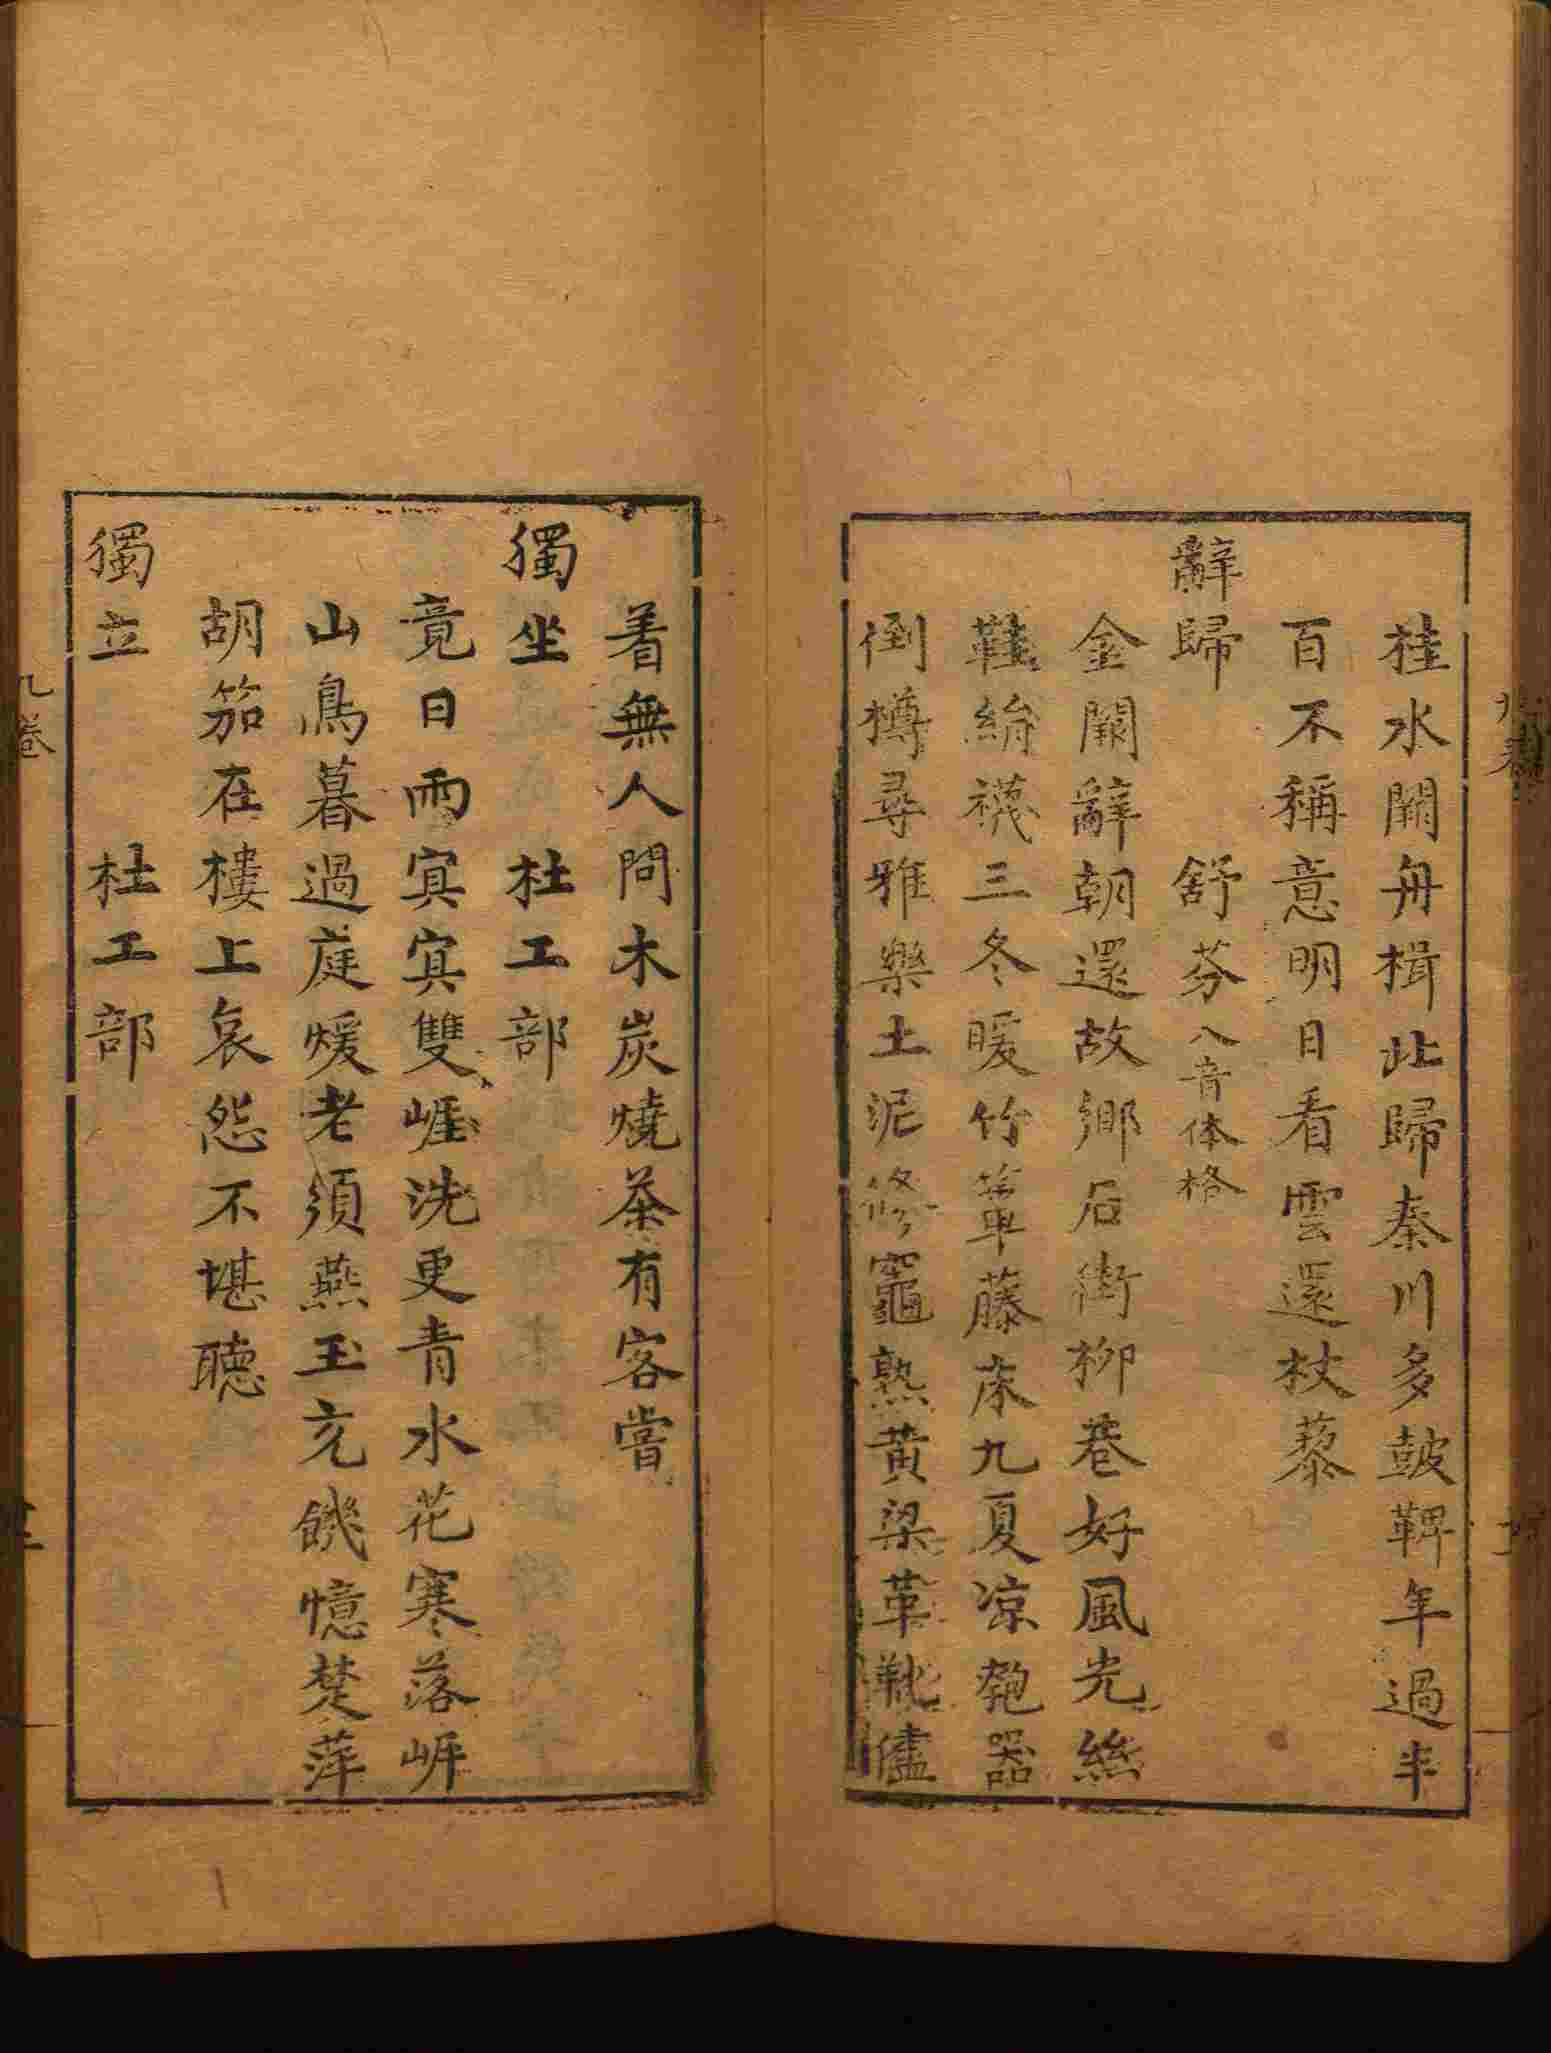 桂水闊舟楫北歸秦川多鼓鞞年過半
百不稱意明日看雲還杖藜
辭歸　舒芬八音体格
金闕辭朝還故鄉石街柳巷好風光絲
鞋絹襪三冬暖竹簟藤床九夏凉匏器
倒樽尋雅樂土泥修竈熟黄梁革靴儘
着無人問木炭燒茶有客嘗
獨坐　杜工部
竟日雨寘寘雙崕洗更青水花寒落岍
山鳥暮過庭煖老須燕玉充饑憶楚萍
胡笳在樓上哀怨不堪聽
獨立　杜工部
九卷